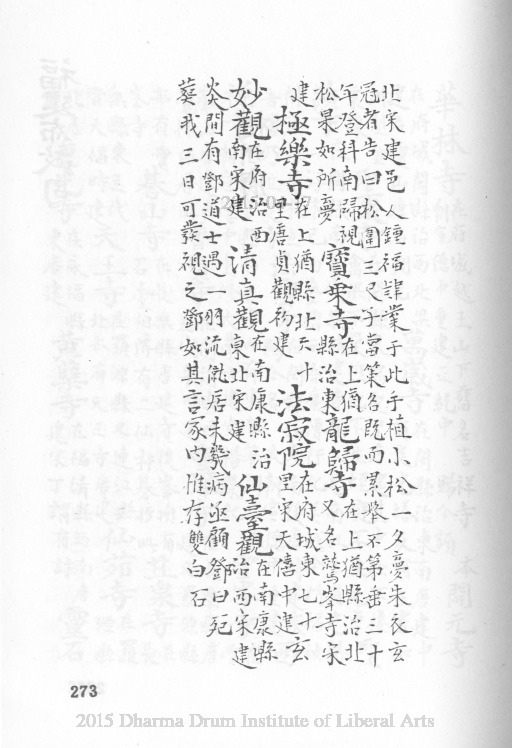 北宋建邑人鍾福肄業于此手植小松一夕夢朱衣玄
冠者告曰松圍三尺子當策名既而累舉不第垂三十
年登科南歸視松果如所夢寶乗寺在上猶縣治東龍歸寺在上猶縣治北又名鷲峯寺宋
建極樂寺在上猶縣北六十里唐貞觀初建法寂院在府城東七十里宋天僖中建玄
妙觀在府治西南宋建清真觀在南康縣治東北宋建仙臺觀在南康縣治西宋建
炎間有鄧道士遇一羽流僦居未幾病亟顧鄧曰死
葬我三日可發視之鄧如其言冢内惟存雙白石
273
2015 Dharma Drum Institute of Liberal Arts